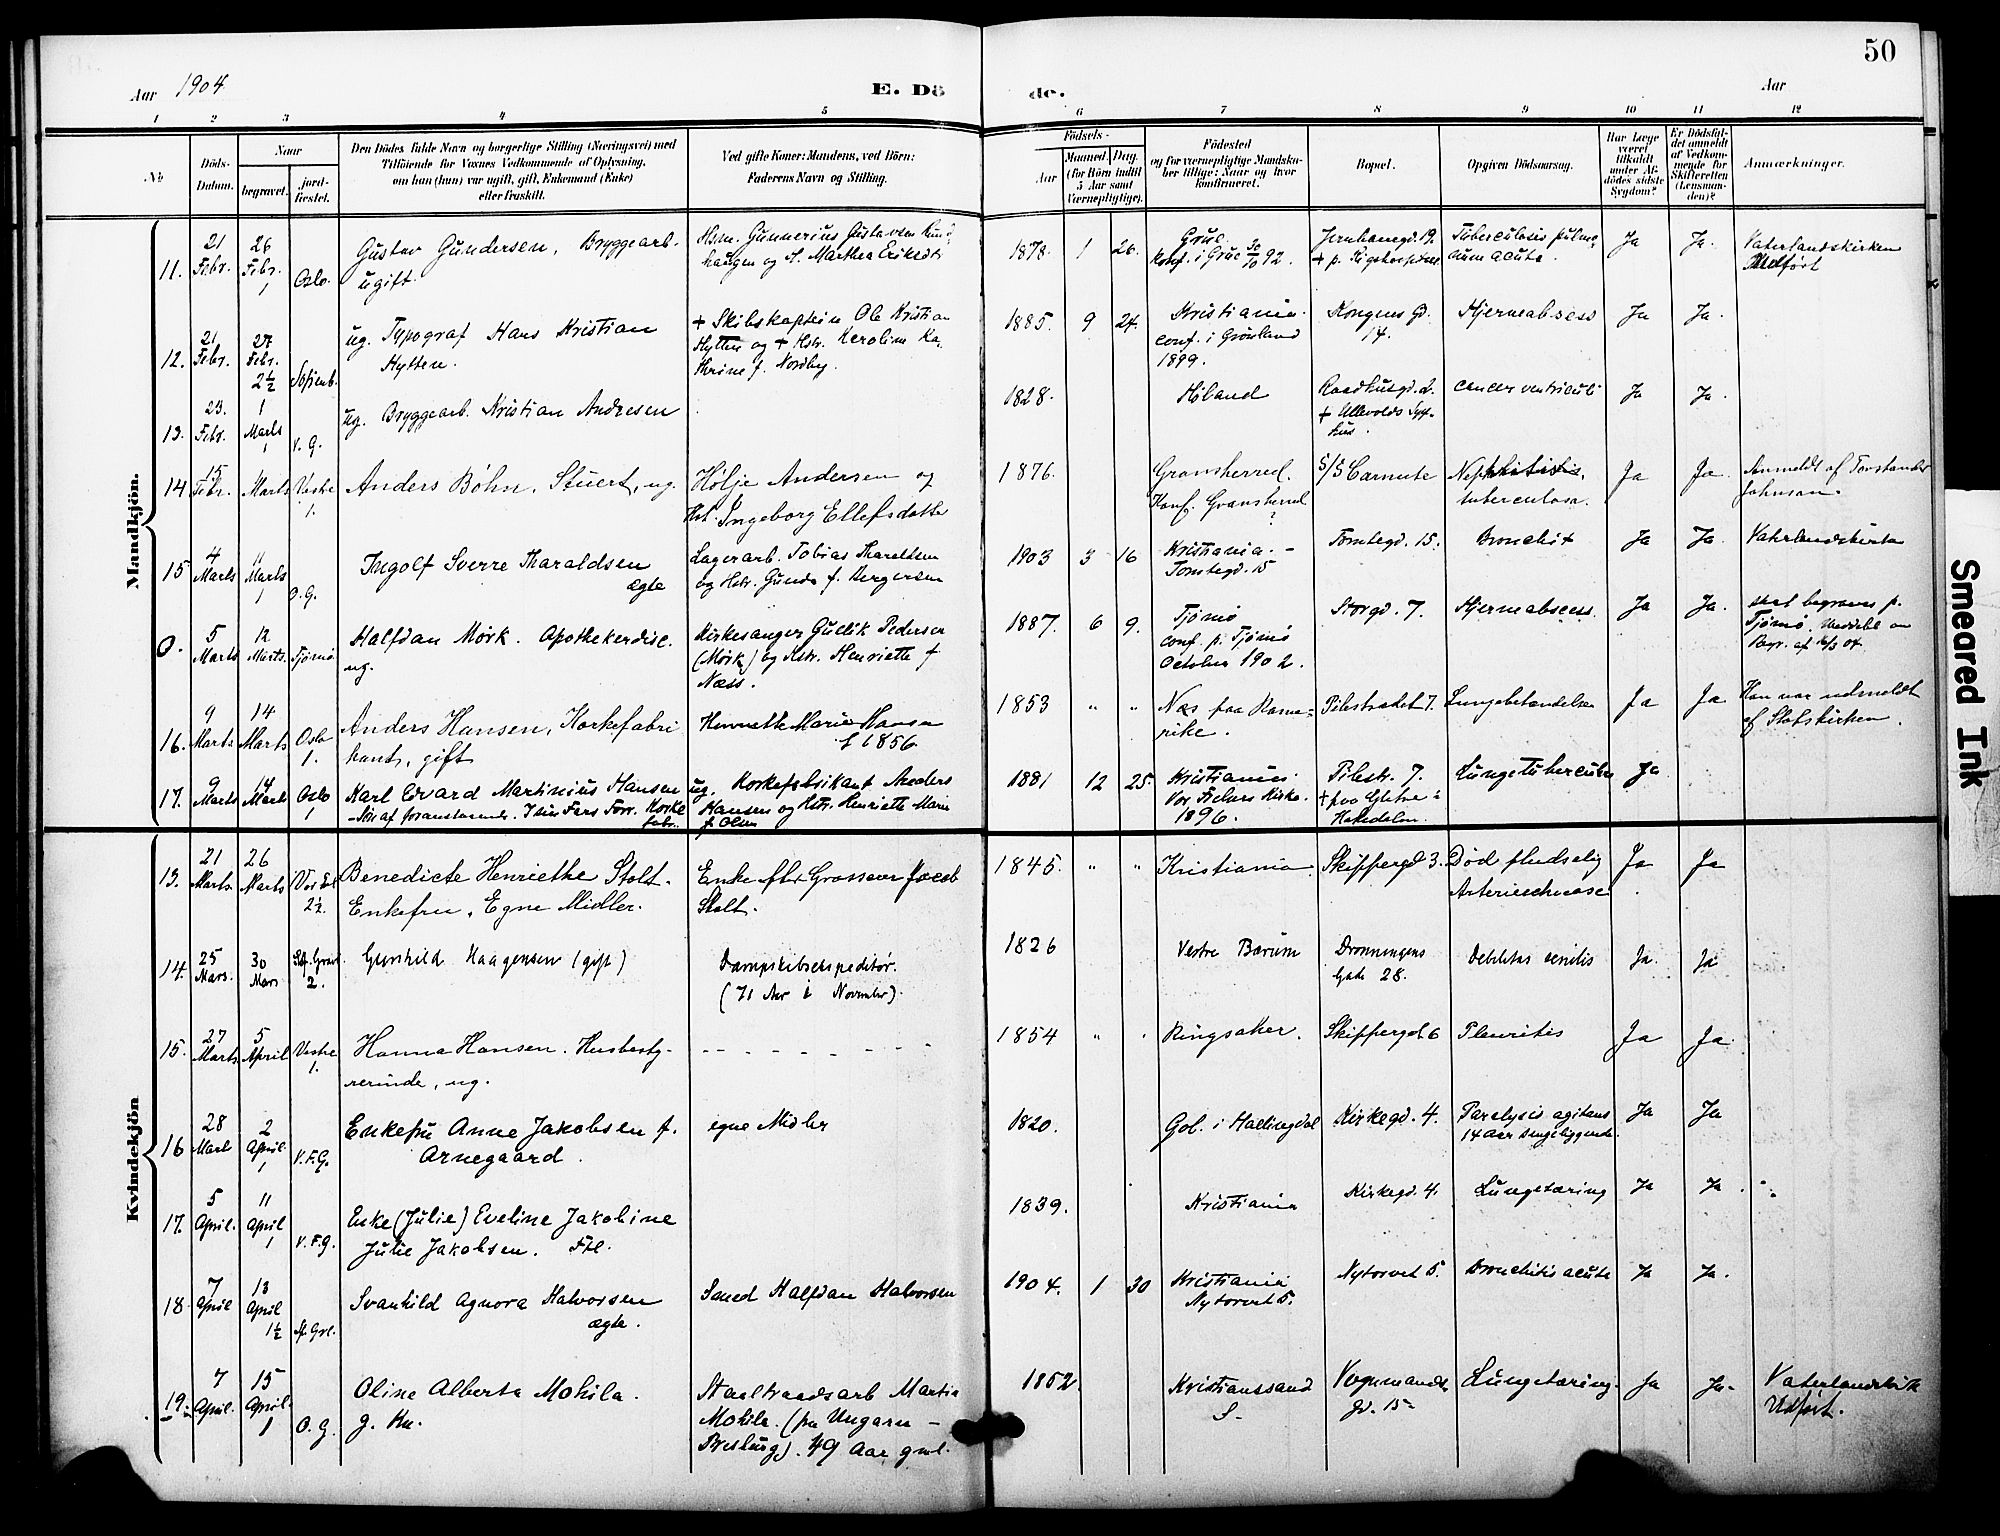 50
Aar 1904
E. Dö
de.
Aar
1 2 3 4 5 6 7 8 9 10 11 12
No
Döds-
Datum.
Naar
begravet.
jord-
fæstet.
Den Dödes fulde Navn og borgerlige Stilling (Næringsvei) med
Tilföiende for Voxnes Vedkommende af Oplysning,
om han (hun) var ugift, gift, Enkemand (Enke)
eller fraskilt.
Ved gifte Koner: Mandens, ved Börn:
Faderens Navn og Stilling.
Födsels-
Aar
Maaned. Dag.
(for Börn indtil
5 Aar samt
Værnepligtige).
Födested
og for værnepligtige Mandska-
ber tillige: Naar og hvor
konfirmeret.
Bopæl.
Opgiven Dödsaarsag.
Har Læge
været
tilkaldt
under Af-
dödes sidste
Sygdom?
Er Dödsfal-
det anmeldt
af Vedkom-
mende for
Skifteretten
(Lensman-
den)?
Anmærkninger.
Mandkjön.
11. 21 Febr. 26 Febr. 1 Oslo.
Gustav Gundersen, Bryggearb.
ugift.
Hsm. Gunnerius Gustavsen
haugen og Marthea Eriksdt
1878 1 26.
Grue
konf. i Grue 30/10 92.
Jernbanegd. 19
Tuberculosis pulmo
num acuta.
Ja Ja.
Vaterlandskirken
Udført
12. 21 Febr. 27 Febr. 2½ Sofienb.
ug. Typograf Hans Kristian
Hytten.
+ Skibskaptein Ole Kristian
Hytten og + Hstr. Karoline Ka
thrine f. Nordby.
1885. 9 24.
Kristiania.
conf. i Grønland
1899.
Kongens gd.
14.
Hjerneabscess
Ja Ja.
13. 23. Febr. 1 Marts 1 V. G.
ug. Bryggearb. Kristian Andresen
1828.
Høland
Raadhusgd. 2.
+ Ullevolds Syge
hus.
cancer ventriculi
Ja Ja.
14 15 Febr. Marts Vestre 1.
Anders Bøhn, Stuert, ug.
Hølje Andersen og
Hst. Ingeborg Ellefsdatte
1876.
Gransherred.
Konf. Gransherred
?
S/S Carmute
Nephritis
tuberculosa.
Ja Ja
Anmeldt af Forstander
Johnson.
15 4 Marts 11 Marts 1 O. G.
Ingolf Sverre Tharaldsen
ægte
Lagerarb. Tobias Tharaldsen
og Hstr. Gunda f. Bergersen
1903 3 16
Kristiania. -
Tomtegd. 15
Tomtegd. 15.
Bronchit
Ja Ja.
Vaterlandskirken
0. 5 Marts 12 Marts. Tjømø
Halfdan Mørk. Apothekerdisc.
ug.
Kirkesanger Gudik Pedersen
(Mørk) og Hstr. Henriette f
Næss.
1887. 6 9.
Tjømø
conf. p. Tjømø
October 1902.
Storgd. 7.
Hjerneabscess.
Ja Ja.
skal begraves p.
Tjømø. Meddelt om
16. 9 Marts 14 Marts Oslo 1.
Anders Hansen, Korkefabri
kant, gift
Henriette Marie Hansen
f 1856
1853 " "
Næs paa Rome-
rike.
Pilestrædet 7.
Lungebetændelse
Ja Ja
Han var udmeldt
af Statskirken.
17. 9 Marts 14 Marts Oslo 1
Karl Edvard Martinius Hansen ug.
- Søn af foranstaaende. I sin Fars Forr. Korke
fabr.
Korkefabrikant Anders
Hansen og Hstr. Henriette Marie
f Olsen
1881 12 25.
Kristiania
Vor Frelsers Kirke
1896.
Pilestr. 7.
+ paa Glitre i
Hakedalen
Lungetuberculos
Ja
Kvindekjön
13. 21 Marts. 26 Marts 2½
Benedicte Henriette Stolt.
Enkefru, Egne Midler.
Enke efter Grosserer Jacob
Stolt.
1845. " "
Kristiania
Skippergd 3.
Død pludselig
Arteriesclerose
Ja Ja
14. 25 Mars. 30 Mars 2.
Gunhild Haagensen (gift)
Dampskibsekspeditør.
(71 Aar i November).
1826
Vestre Bærum
Dronningens
Gade 28.
Debilitas senilis
Ja. Ja
15. 27 Marts 5 April Vestre 1.
Hanna Hansen. Husbesty-
rerinde, ug.
- - - - - - - -
1854 " "
Ringsaker.
Skippergd. 6
Pleuritis
Ja Ja.
16 28 Mart 2 April. 1 V. F. G.
Enkefru Anne Jakobsen f.
Arnegaard.
egne Midler
1820.
Gol. i Hallingdal
Kirkegd. 4.
Paralysis agitans
14 Aar sengeliggende.
Ja Ja
17. 5 April. 11 April 1 V. F. G.
Enke (Julie) Eveline Jakobine
Julie Jakobsen. Ftl.
1839.
Kristiania
Kirkegd. 4.
Lungetæring
Ja Ja.
18 7 April 13 April 1½
Svanhild Agnora Halvorsen
ægte.
Smed Halfdan Halvorsen
1904. 1 30
Kristiania
Nytorvet 5.
Nytorvet 5.
Bronchitis acuta
Ja Ja.
19. 7 April. 15 April. 1 O. G.
Oline Alberta Mohila.
g. Kv.
Staaltraadsarb Martin
Mohila. (fra Ungarn -
Presburg). 49 Aar gml.
1852.
Kristianssand
S-
Vognmands
gd. 15-
Lungetæring.
Ja Ja.
Vaterlandskirk
Udført.
Smeared Ink